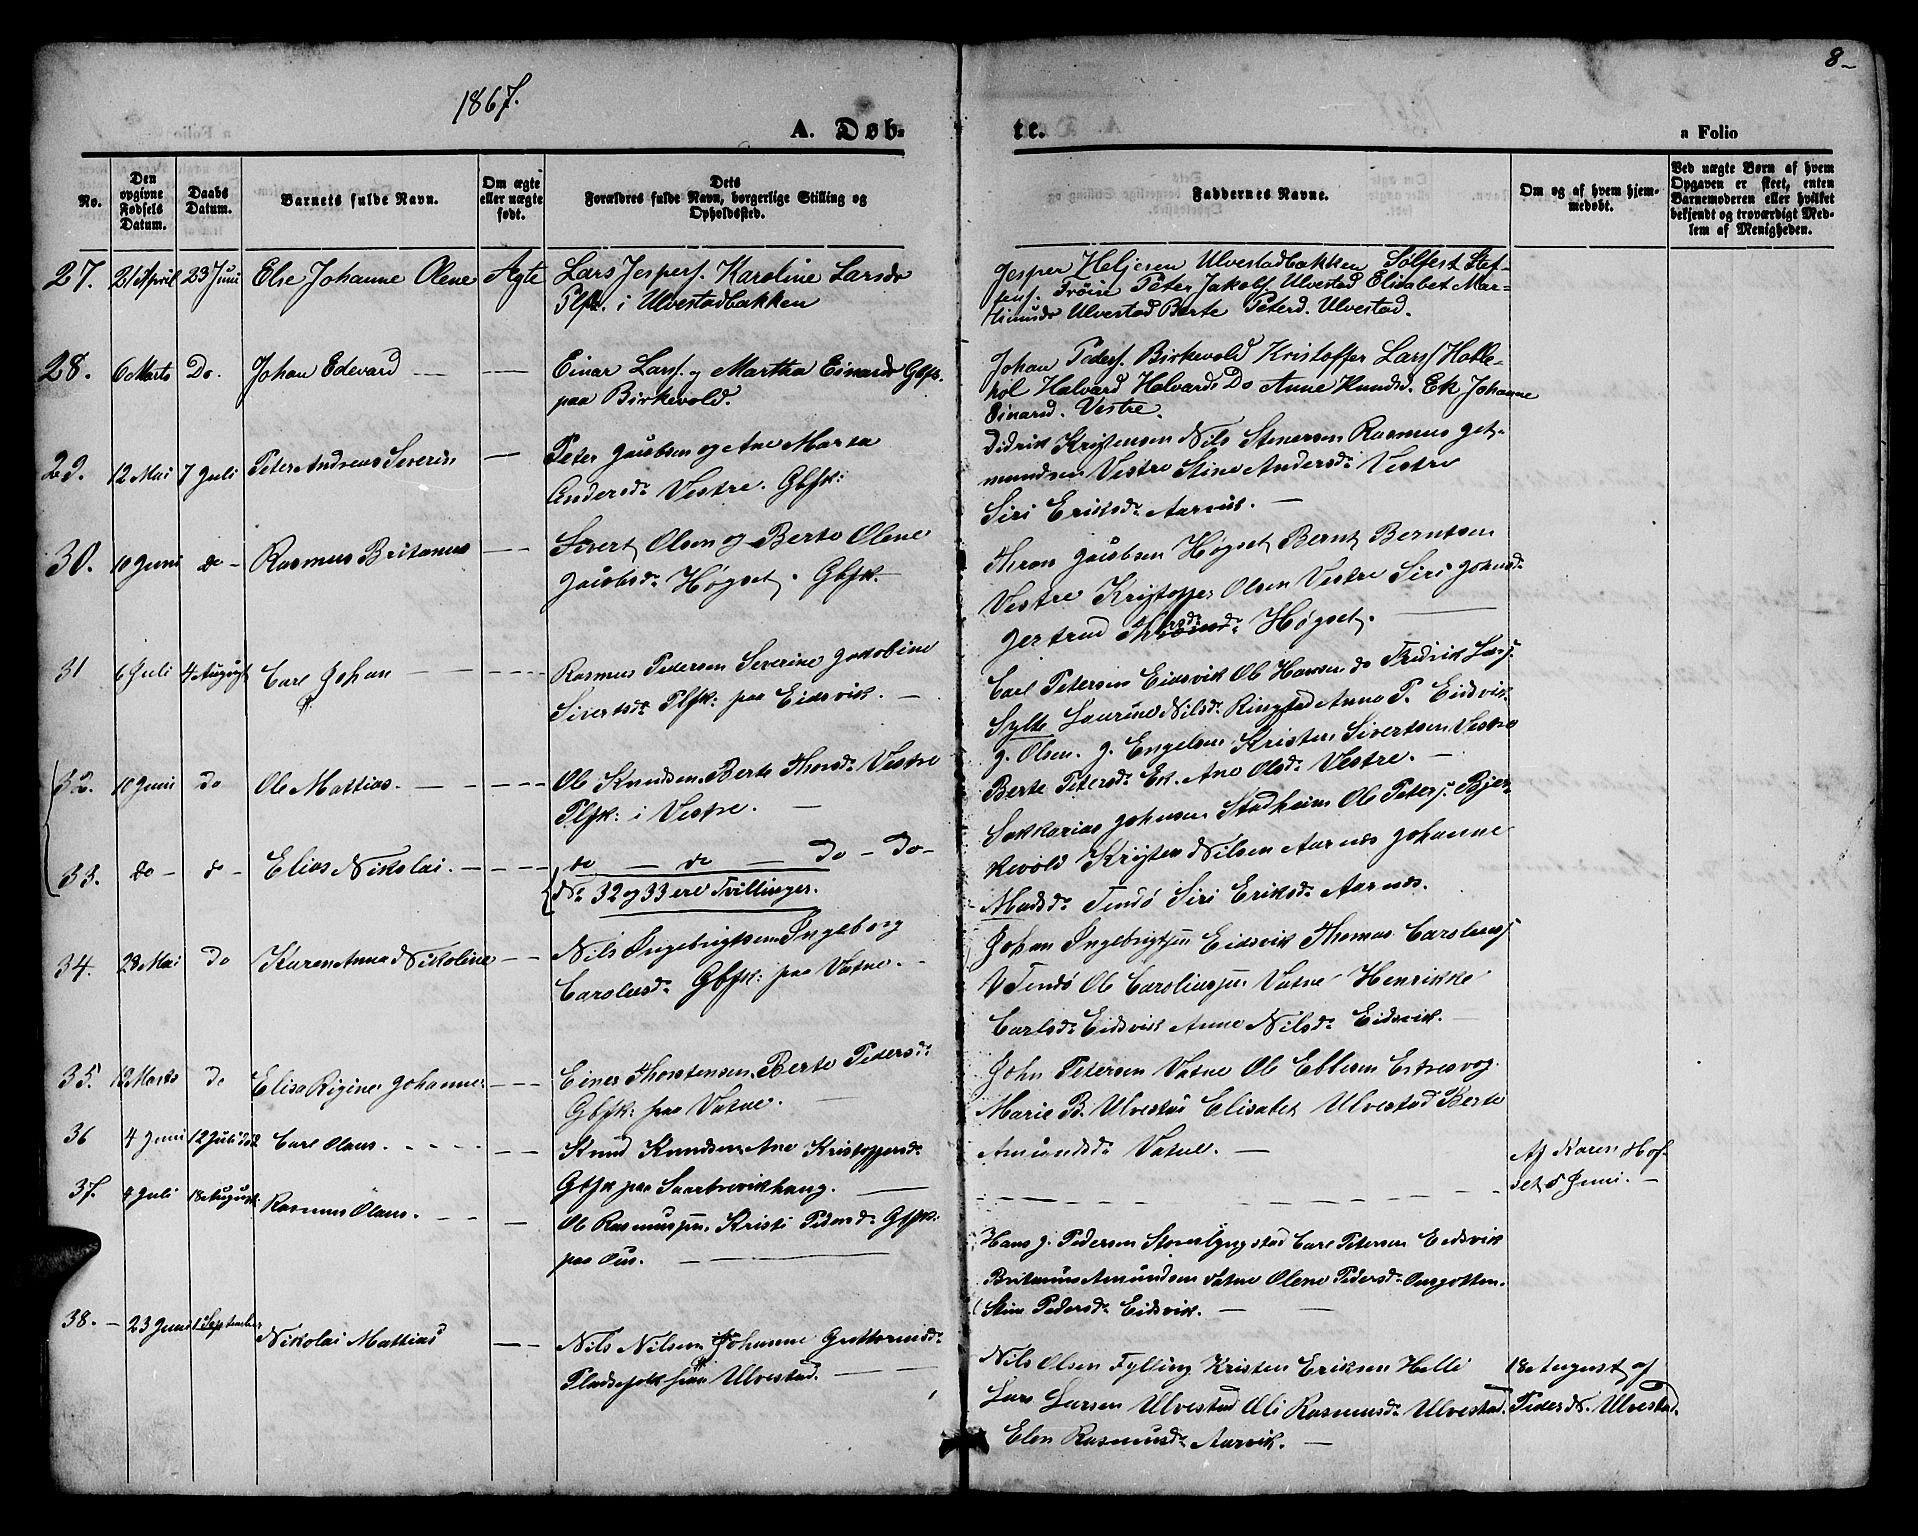 8
1867.
A. Døb-
te.
a Folio
No.
Den opgivne Fødsels Datum.
Daabs Datum.
Barnets fulde Navn.
Om ægte eller uægte født.
Dets Forældres fulde Navn, borgerlige Stilling og Opholdssted.
Faddernes Navne.
Om og af hvem hjemmedøbt.
Ved uægte Børn af hvem Opgaven er skeet, enten Barnemoderen eller hvilket bekjendt og troværdigt Medlem af Menigheden.
27. 21 April 23 Juni Else Johanne Olene Ægte Lars Jespers. Karoline Larsdr
Plfk. i Ulvestadbakken
Jesper Heljesen Ulvestadbakken Sølfest Stef-
fens. Trøire Peter Jakols Ulvestad Elisabet Mar-
Ulvestad Berte Peterd. Ulvestad.
28. 6 Marts Do. Johan Edevard
Einar Lars. og Martha Einarsd Gbfk.
paa Birkevold.
Johan Peders. Birkevold Kristoffer Lars. Holle-
hol Halvard Halvards Do Anne Knudsd. Ek Johanne
Einarsd. Vestre.
29. 12 Mai 7 Juli Peter Andreas Severin
Peter Jacobsen og Ane Marta
Andersdr Vestre. Gbfk:
Didrik Kristensen Nils Stenersen Rasmus Get-
mundsen Vestre Stine Andersdr Vestre
Siri Eriksdr Aarnes.
30. 10 Juni do Rasmus Britanus
Sivert Olsen og Berte Olene
Jacobsdr Høgset. Gbfk.
Thron Jacobsen Høgset Bernt Berntsen
Vestre Kristoffer Olsen Vestre Siri Johnsdr
Gertrud Høgset.
31 6 Juli 4 August Carl Johan
Rasmus Pedersen Severine Jakobine
Sivertsdr Plfk: paa Eidsvik.
Carl Petersen Eidsvik Ole Hansen do Fredrik Lars.
Sylte Laurine Nilsdr Ringstad Anna P. Eidsvik
32. 10 Juni Do Ole Mattias.
Ole Knudsen Berte Thorsdr Vestre
Plfk: i Vestre.
J. Olsen. J. Engelsen Kristen Sivertsen Vestre
Berte Petersdr Ek. Ane Olsdr Vestre.
33. do do Elias Nikolai.
do do Do Do
No 32 og 33 ere Tvillinger.
Sakkarias Johnsen Stadheim Ole Peters. Bjer-
kevold Kristen Nilsen Aarnes Johanne
Madsdr Tindø Siri Eriksdr Aarnes.
34. 28 Mai Do Karen Anna Nikoline
Nils Ingebrigtsen Ingeborg
Carolusdr Gbfk: paa Vatne.
Johan Ingebrigtsen Eidsvik Thomas Carolius.
Tindø Ole Caroliussen Vatne Henrikke
Carlsdr Eidsvik Anne Nilsdr Eidsvik.
35. 12 Marts do Elisa Rigine Johanne
Einer Thorstensen Berte Pedersdr
Gbfk: paa Vatne.
John Petersen Vatne Ole Ebbesen Estresvog.
Marie B. Ulvestad Elisabet Ulvestad Berte
Amundsdr Vatne.
36 4 Juni 12 Juli Carl Olaus.
Knud Knudsen Ane Kristoffersdr
Gbfk paa Saarbrevikhaug.
Af Karen Hof-
set 5 Juni.
37. 4 Juli 18 August. Rasmus Olaus.
Ole Rasmussen. Kristi Pedersdr Gbfk:
paa Ous.
Hans J. Pedersen Storelyngstad Carl Petersen Eidsvik
Britanus Amundsen Vatne Olene Pedersdr Ousgotten.
Stine Pedersdr Eidsvik.
38. 23 Juni 1 September Nikolai Mattias
Nils Nilsen Johanne Guttormsdr
Pladsefolk paa Ulvestad.
Nils Olsen Fylling Kristen Eriksen Helle
Lars Larsen Ulvestad Oli Rasmusdr Ulvestad.
Elen Rasmusdr Aarvik.
18 August af
Peder N. Ulvestad.